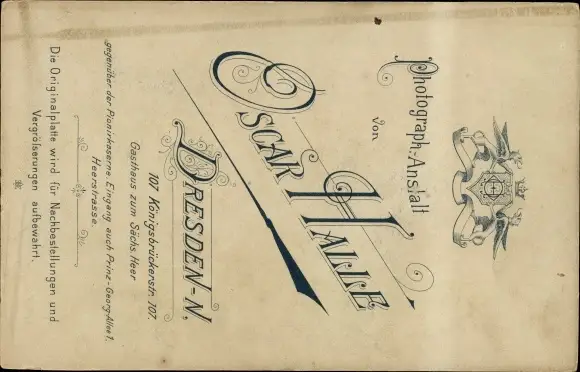 Photograph.-Anstalt
von
OSCAR HALLE
DRESDEN-N,
107 Königsbrückerstr. 107.
Gasthaus zum Sächs. Heer
gegenüber der Pionirkaserne, Eingang auch Prinz-Georg-Allee 7,
Heerstrasse.
Die Originalplatte wird für Nachbestellungen und
Vergrölserungen aufbewahrt.